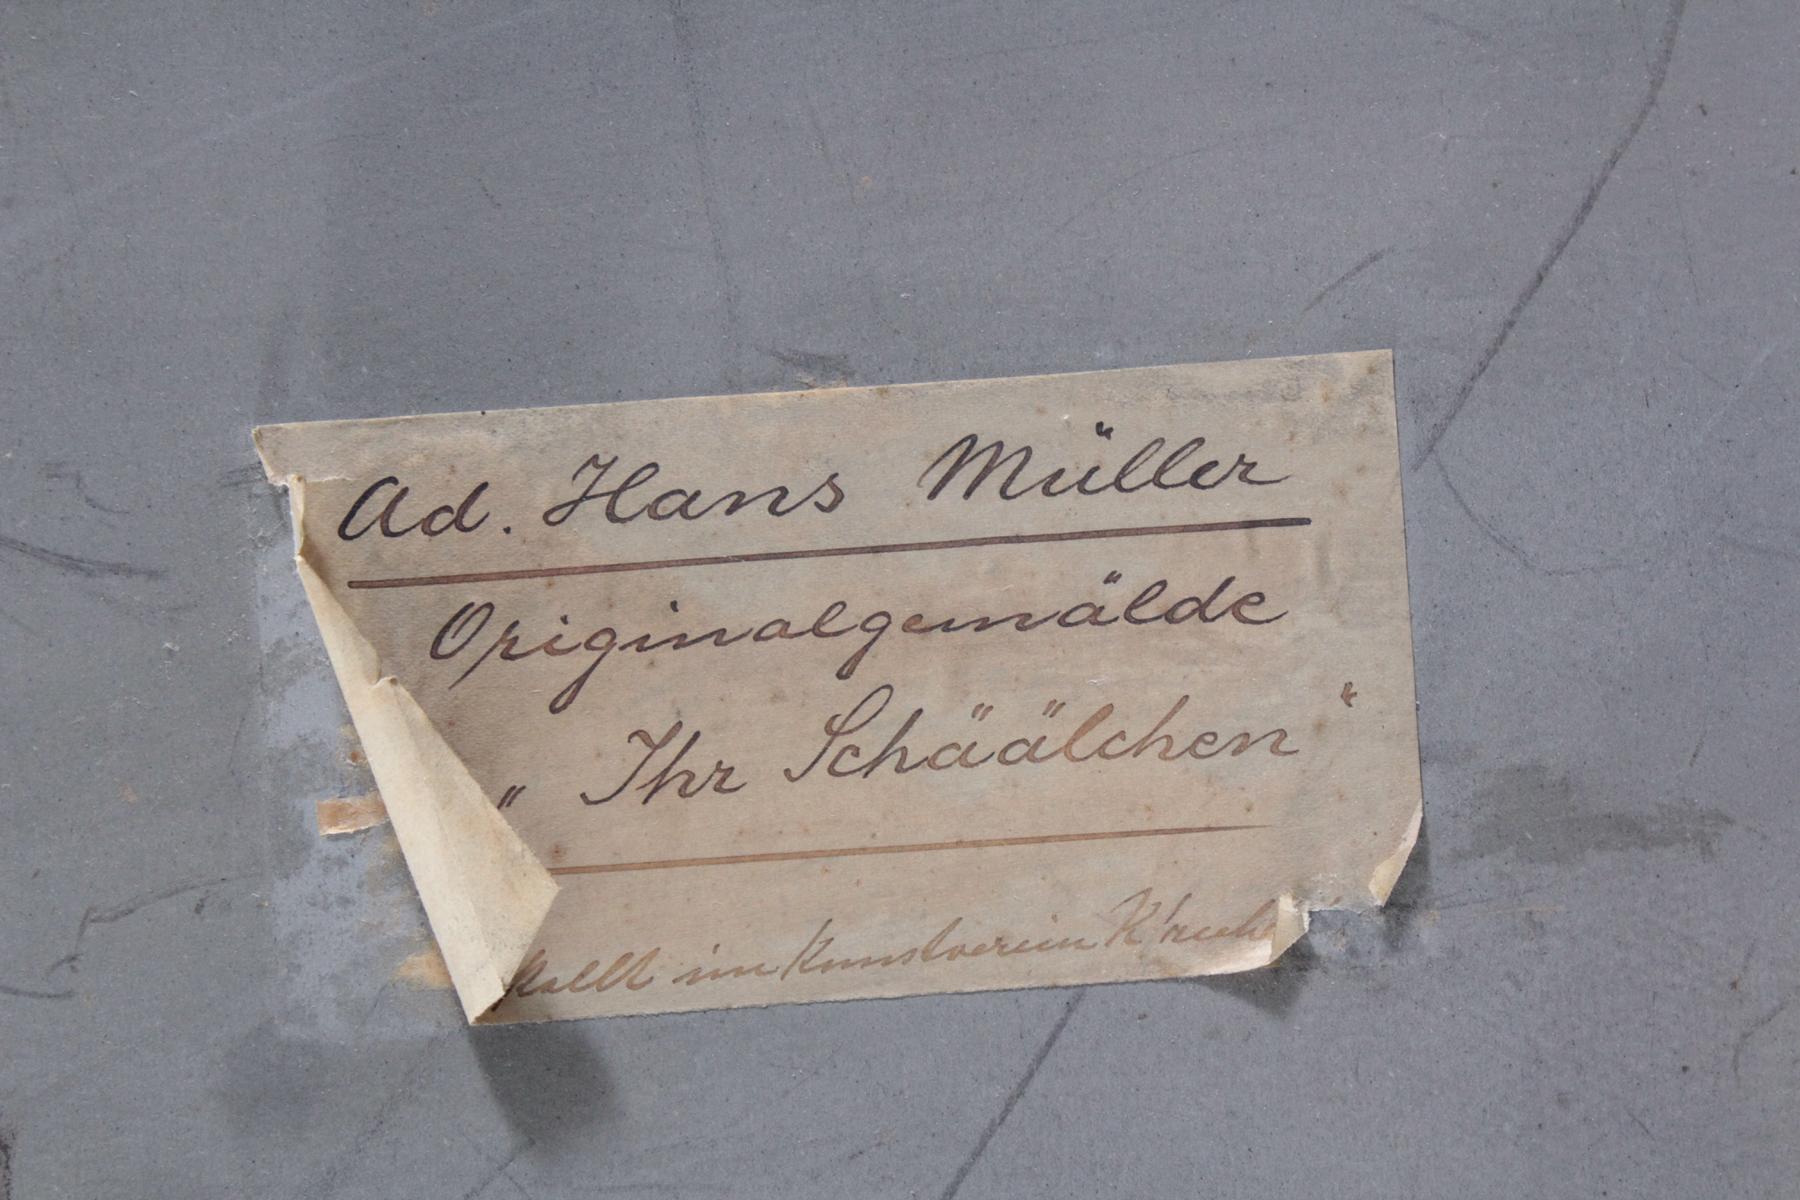 Ad. Hans Müller
Originalgemälde
„ Ihr Schäälchen "
stellt im Kunstverein K'ruhe